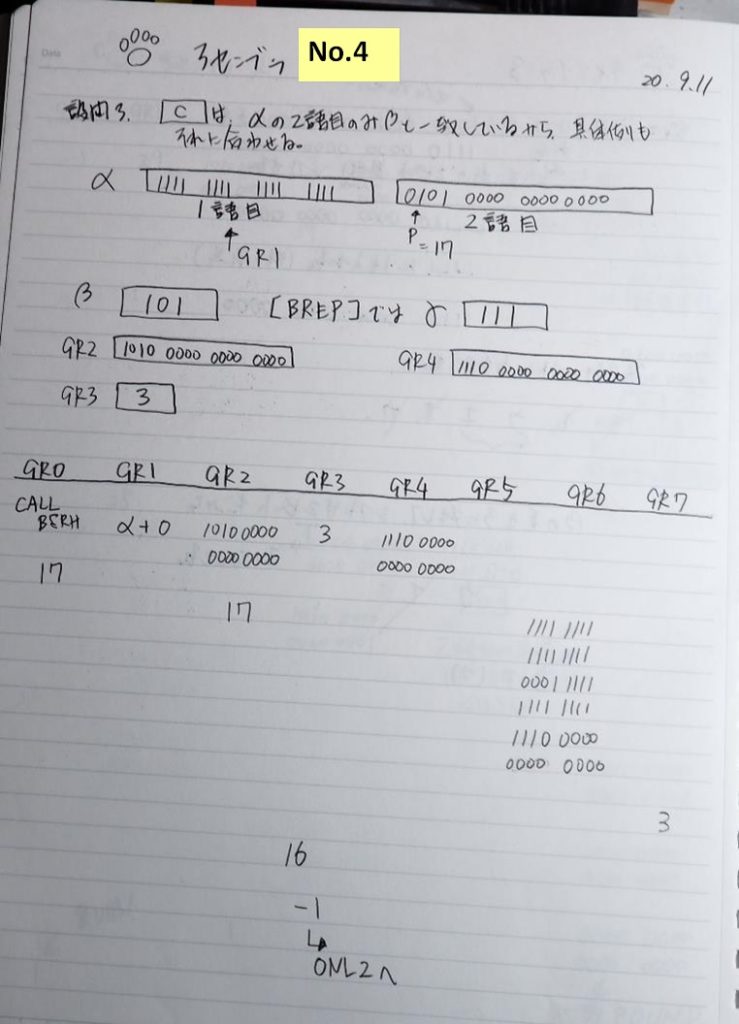 Date
No.4
3センブン
20.9.11
設問3. [C]は、αの2語目のみβと一致しているから、具体例も
それに合わせる。
α 1111 1111 1111 1111 0101 0000 0000 0000
1語目 ↑ 2語目
↑GR1 P=17
β 101 [BREP]では γ 111
GR2 1010 0000 0000 0000 GR4 1110 0000 0000 0000
GR3 3
GR0 GR1 GR2 GR3 GR4 GR5 GR6 GR7
CALL
BSRH α+0 1010 0000 3 1110 0000
0000 0000 0000 0000
17
17
1111 1111
1111 1111
0001 1111
1111 1111
1110 0000
0000 0000
3
16
-1
ONL2へ